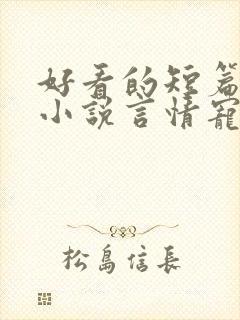 好看的短篇
小说言情宠
松島信長